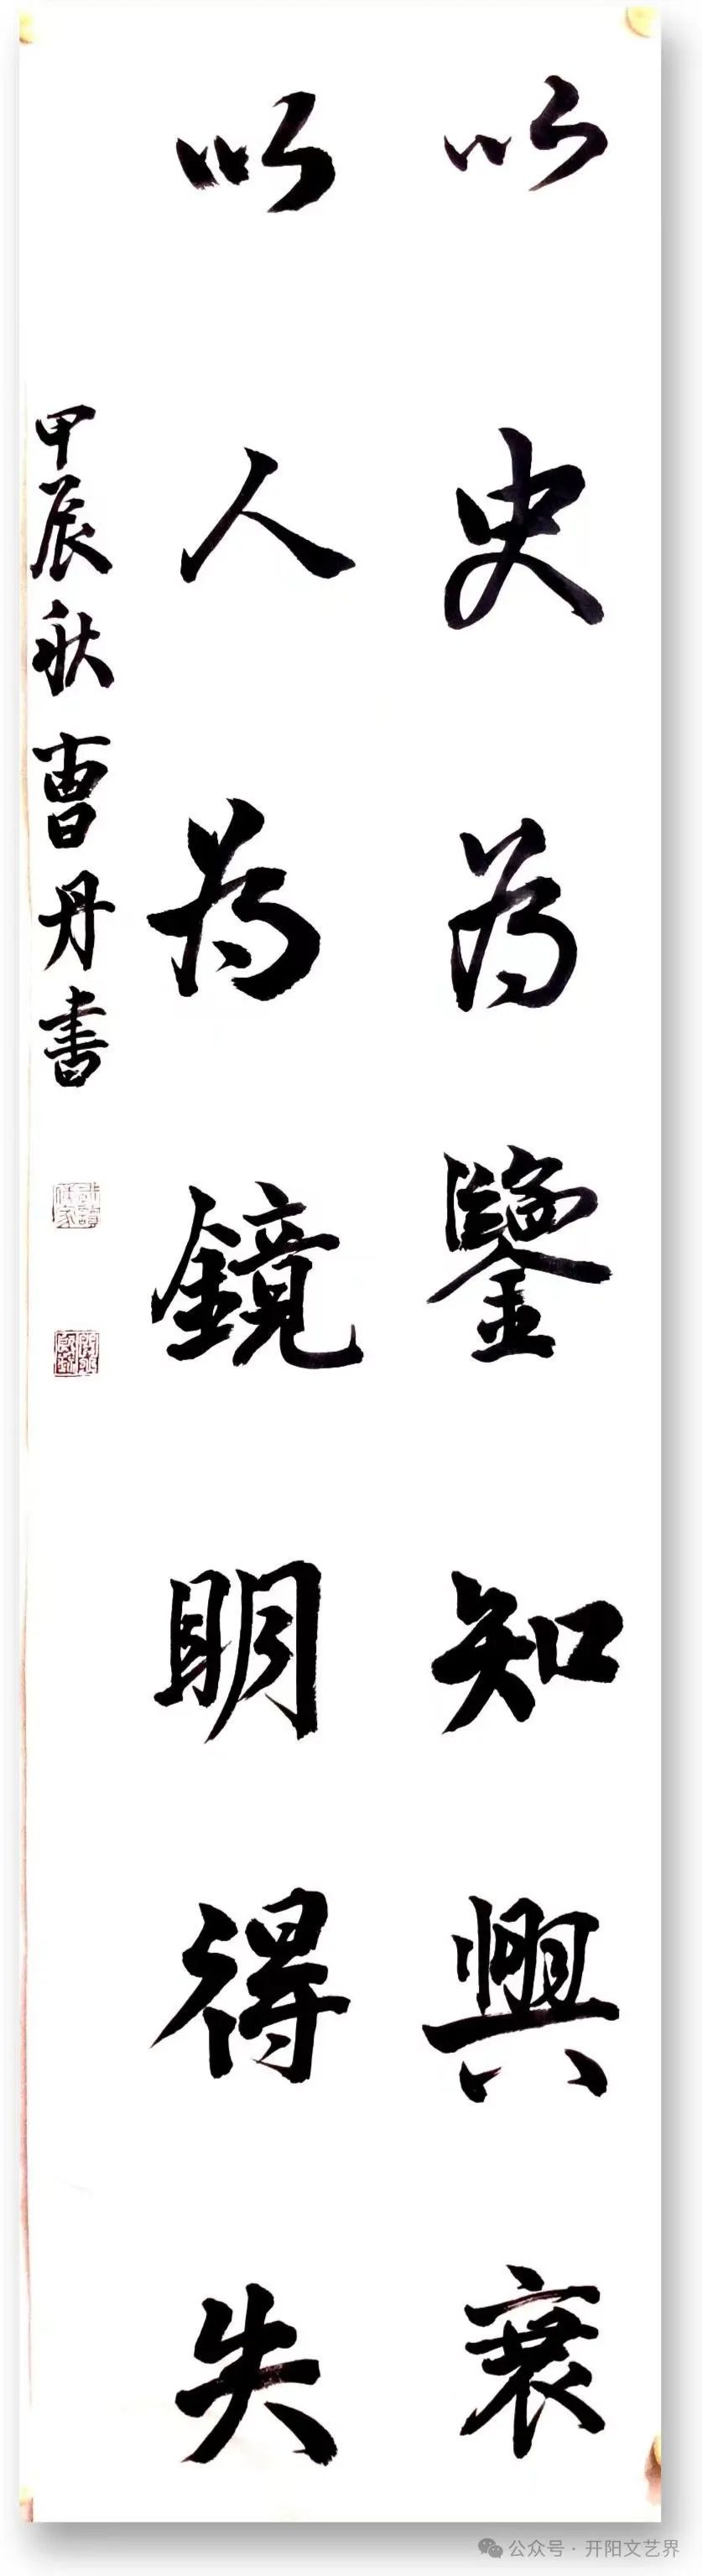 以史為鑒知興衰
以人為鏡明得失
甲辰秋曹丹書
公众号·开阳文艺界